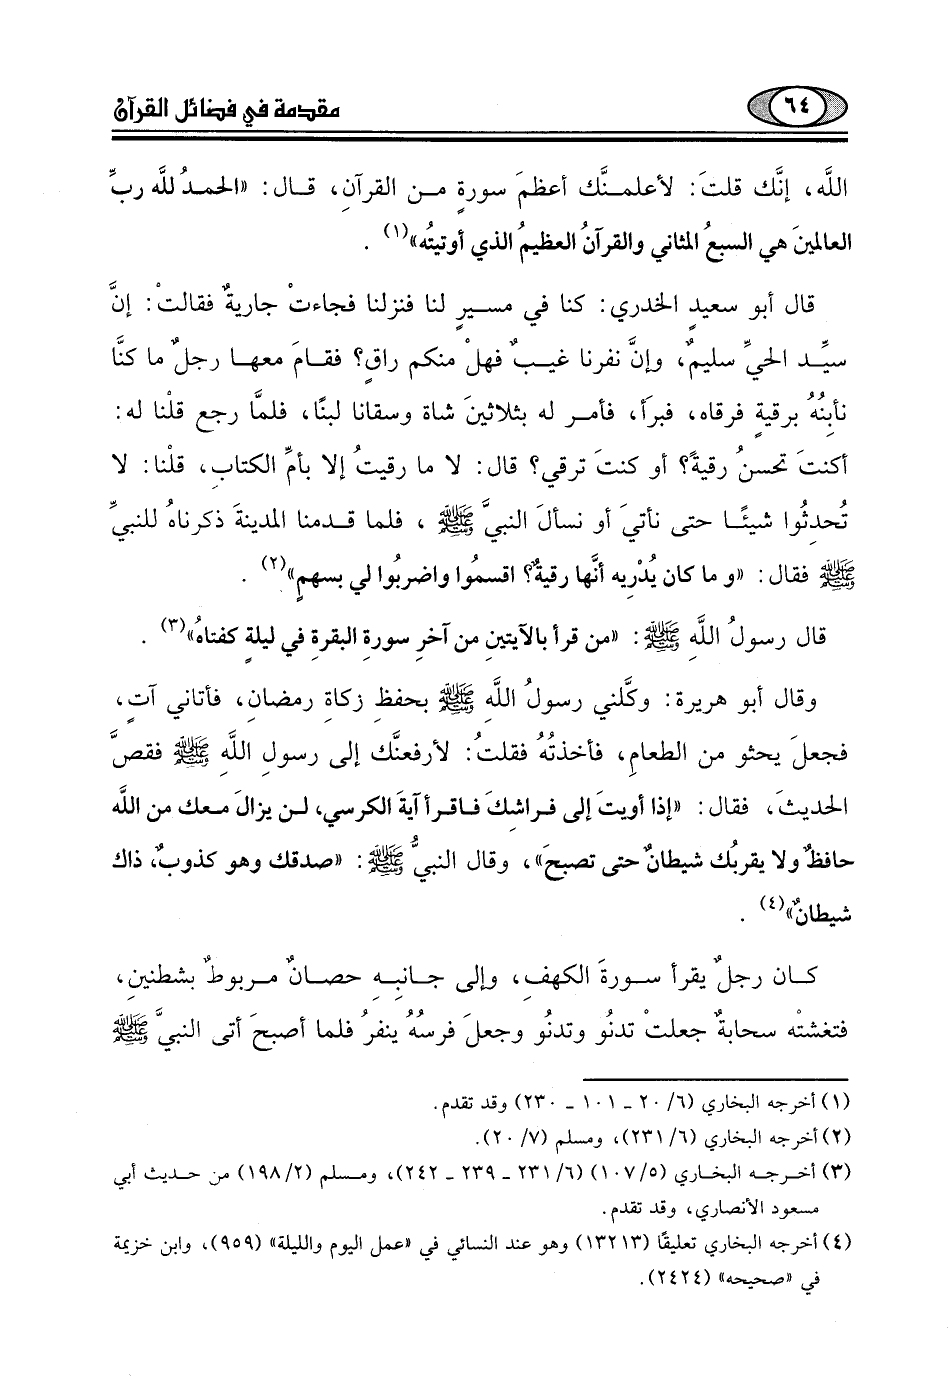 ٦٤
مقدمة في فضائل القرآن
اللَّه، إنَّك قلتَ: لأعلمنَّك أعظمَ سورةٍ من القرآنِ، قال: «الحمدُ للَّه ربِّ
العالمينَ هي السبعُ المثاني والقرآنُ العظيمُ الذي أوتيتُه»(١) .
قال أبو سعيدٍ الخدري: كنا في مسيرٍ لنا فنزلنا فجاءتْ جاريةٌ فقالتْ: إنَّ
سيِّد الحيِّ سليمٌ، وإنَّ نفرنا غيبٌ فهلْ منكم راقٍ؟ فقامَ معها رجلٌ ما كنَّا
نأبِنُهُ برقيةٍ فرقاه، فبرَأ، فأمر له بثلاثينَ شاة وسقانا لبنًا، فلمَّا رجع قلْنا له:
أكنتَ تحسنُ رقيةً؟ أو كنتَ ترقي؟ قال: لا ما رقيتُ إلا بأمِّ الكتابِ، قلْنا: لا
تُحدِثُوا شيئًا حتى نأتيَ أو نسألَ النبيَّ ﷺ ، فلما قدمنا المدينةَ ذكرناهُ للنبيِّ
ﷺ فقال: «و ما كان يُدْرِيه أنَّها رقيةٌ؟ اقسمُوا واضربُوا لي بسهمٍ»(٢) .
قال رسولُ اللَّهِ ﷺ: «من قرأ بالآيتينِ من آخرِ سورةِ البقرةِ في ليلةٍ كفتاهُ»(٣) .
وقال أبو هريرة: وكَّلني رسولُ اللَّهِ ﷺ بحفظِ زكاةِ رمضانِ، فأتاني آتٍ،
فجعلَ يحثو من الطعامِ، فأخذتُهُ فقلتُ: لأرفعنَّك إلى رسولِ اللَّهِ ﷺ فقصَّ
الحديثَ، فقال: «إذا أويتَ إلى فراشكَ فاقرأ آيةَ الكرسي، لن يزالَ معك من اللَّه
حافظٌ ولا يقربُك شيطانٌ حتى تصبحَ»، وقال النبيُّ ﷺ: «صدقك وهو كذوبٌ، ذاك
شيطانٌ»(٤) .
كان رجلٌ يقرأ سورةَ الكهفِ، وإلى جانبِه حصانٌ مربوطٌ بشطنينِ،
فتغشتْه سحابةٌ جعلتْ تدنُو وتدنُو وجعلَ فرسُهُ ينفرُ فلما أصبحَ أتى النبيَّ ﷺ
(١) أخرجه البخاري (٢٠/٦ ـ ١٠١ ـ ٢٣٠) وقد تقدم.
(٢) أخرجه البخاري (٢٣١/٦)، ومسلم (٢٠/٧).
(٣) أخرجه البخاري (١٠٧/٥) (٢٣١/٦ ـ ٢٣٩ ـ ٢٤٢)، ومسلم (١٩٨/٢) من حديث أبي
مسعود الأنصاري، وقد تقدم.
(٤) أخرجه البخاري تعليقًا (١٣٢١٣) وهو عند النسائي في «عمل اليوم والليلة» (٩٥٩)، وابن خزيمة
في «صحيحه» (٢٤٢٤).